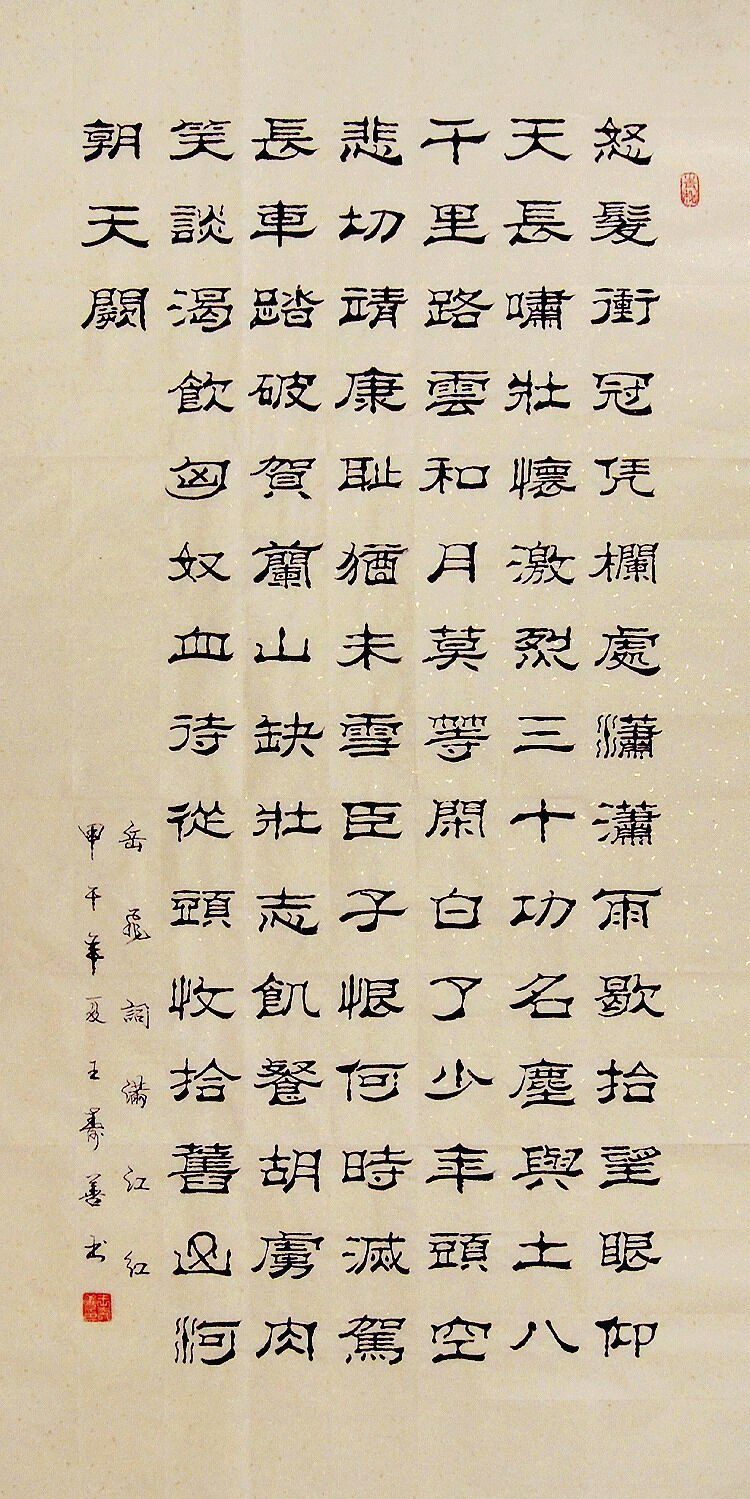 怒髮衝冠凭欄處瀟瀟雨歇拾望眼仰
天長嘯壯懷激烈三十功名塵與土八
千里路雲和月莫等閑白了少年頭空
悲切靖康耻猶未雪臣子恨何時滅駕
長車踏破賀蘭山缺壯志飢餐胡虜肉
笑談渴飲匈奴血待從頭收拾舊山河
朝天闕
岳飛詞滿江紅
甲午年夏王壽善书